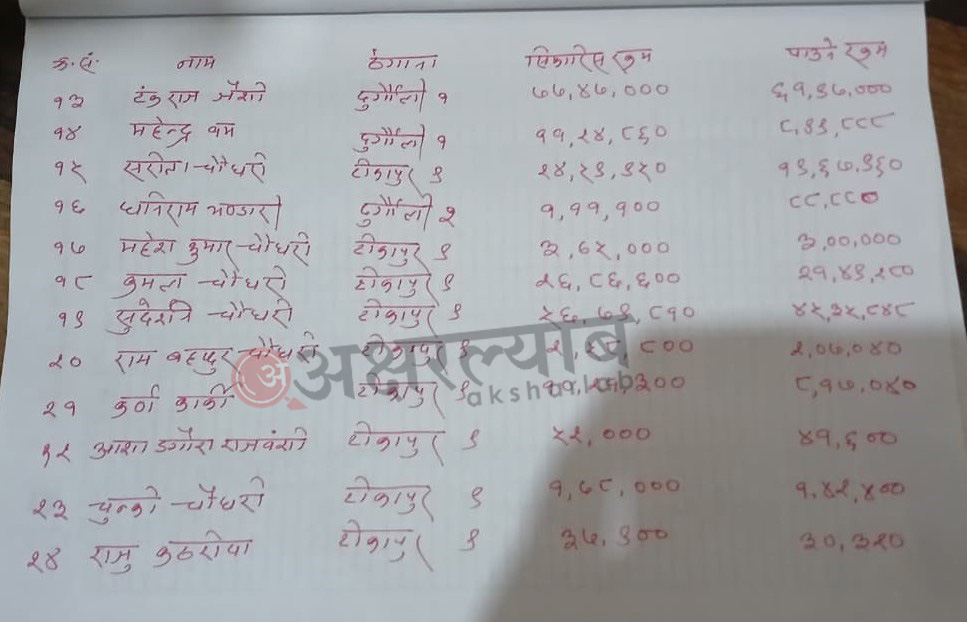 क्र.सं. नाम ठेगाना सिफारिस रकम पाउने रकम
१३ टंक राज जैशी दुर्गौली १ ७७,४७,००० ६१,९७,०००
१४ महेन्द्र बम दुर्गौली १ ११,२४,८६० ८,९९,८८८
१५ सरीता चौधरी टीकापुर ९ २४,५९,९५० १९,६७,९६०
१६ धनिराम भण्डारी दुर्गौली २ १,११,१०० ८८,८८०
१७ महेश कुमार चौधरी टीकापुर ९ ३,७५,००० ३,००,०००
१८ कमला चौधरी टीकापुर ९ २६,८६,६०० २१,४९,२८०
१९ सुदर्शन चौधरी टीकापुर ९ ५६,७९,८१० ४५,४३,८४८
२० राम बहादुर चौधरी टीकापुर ९ २,५८,८०० २,०७,०४०
२१ कर्ण कार्की टीकापुर ९ ८,१७,०४०
२२ आशा डगौरा राजवंशी टीकापुर ९ ५२,००० ४१,६००
२३ चुन्की चौधरी टीकापुर ९ १,७८,००० १,४२,४००
२४ राजु कठरीया टीकापुर ९ ३७,९०० ३०,३२०